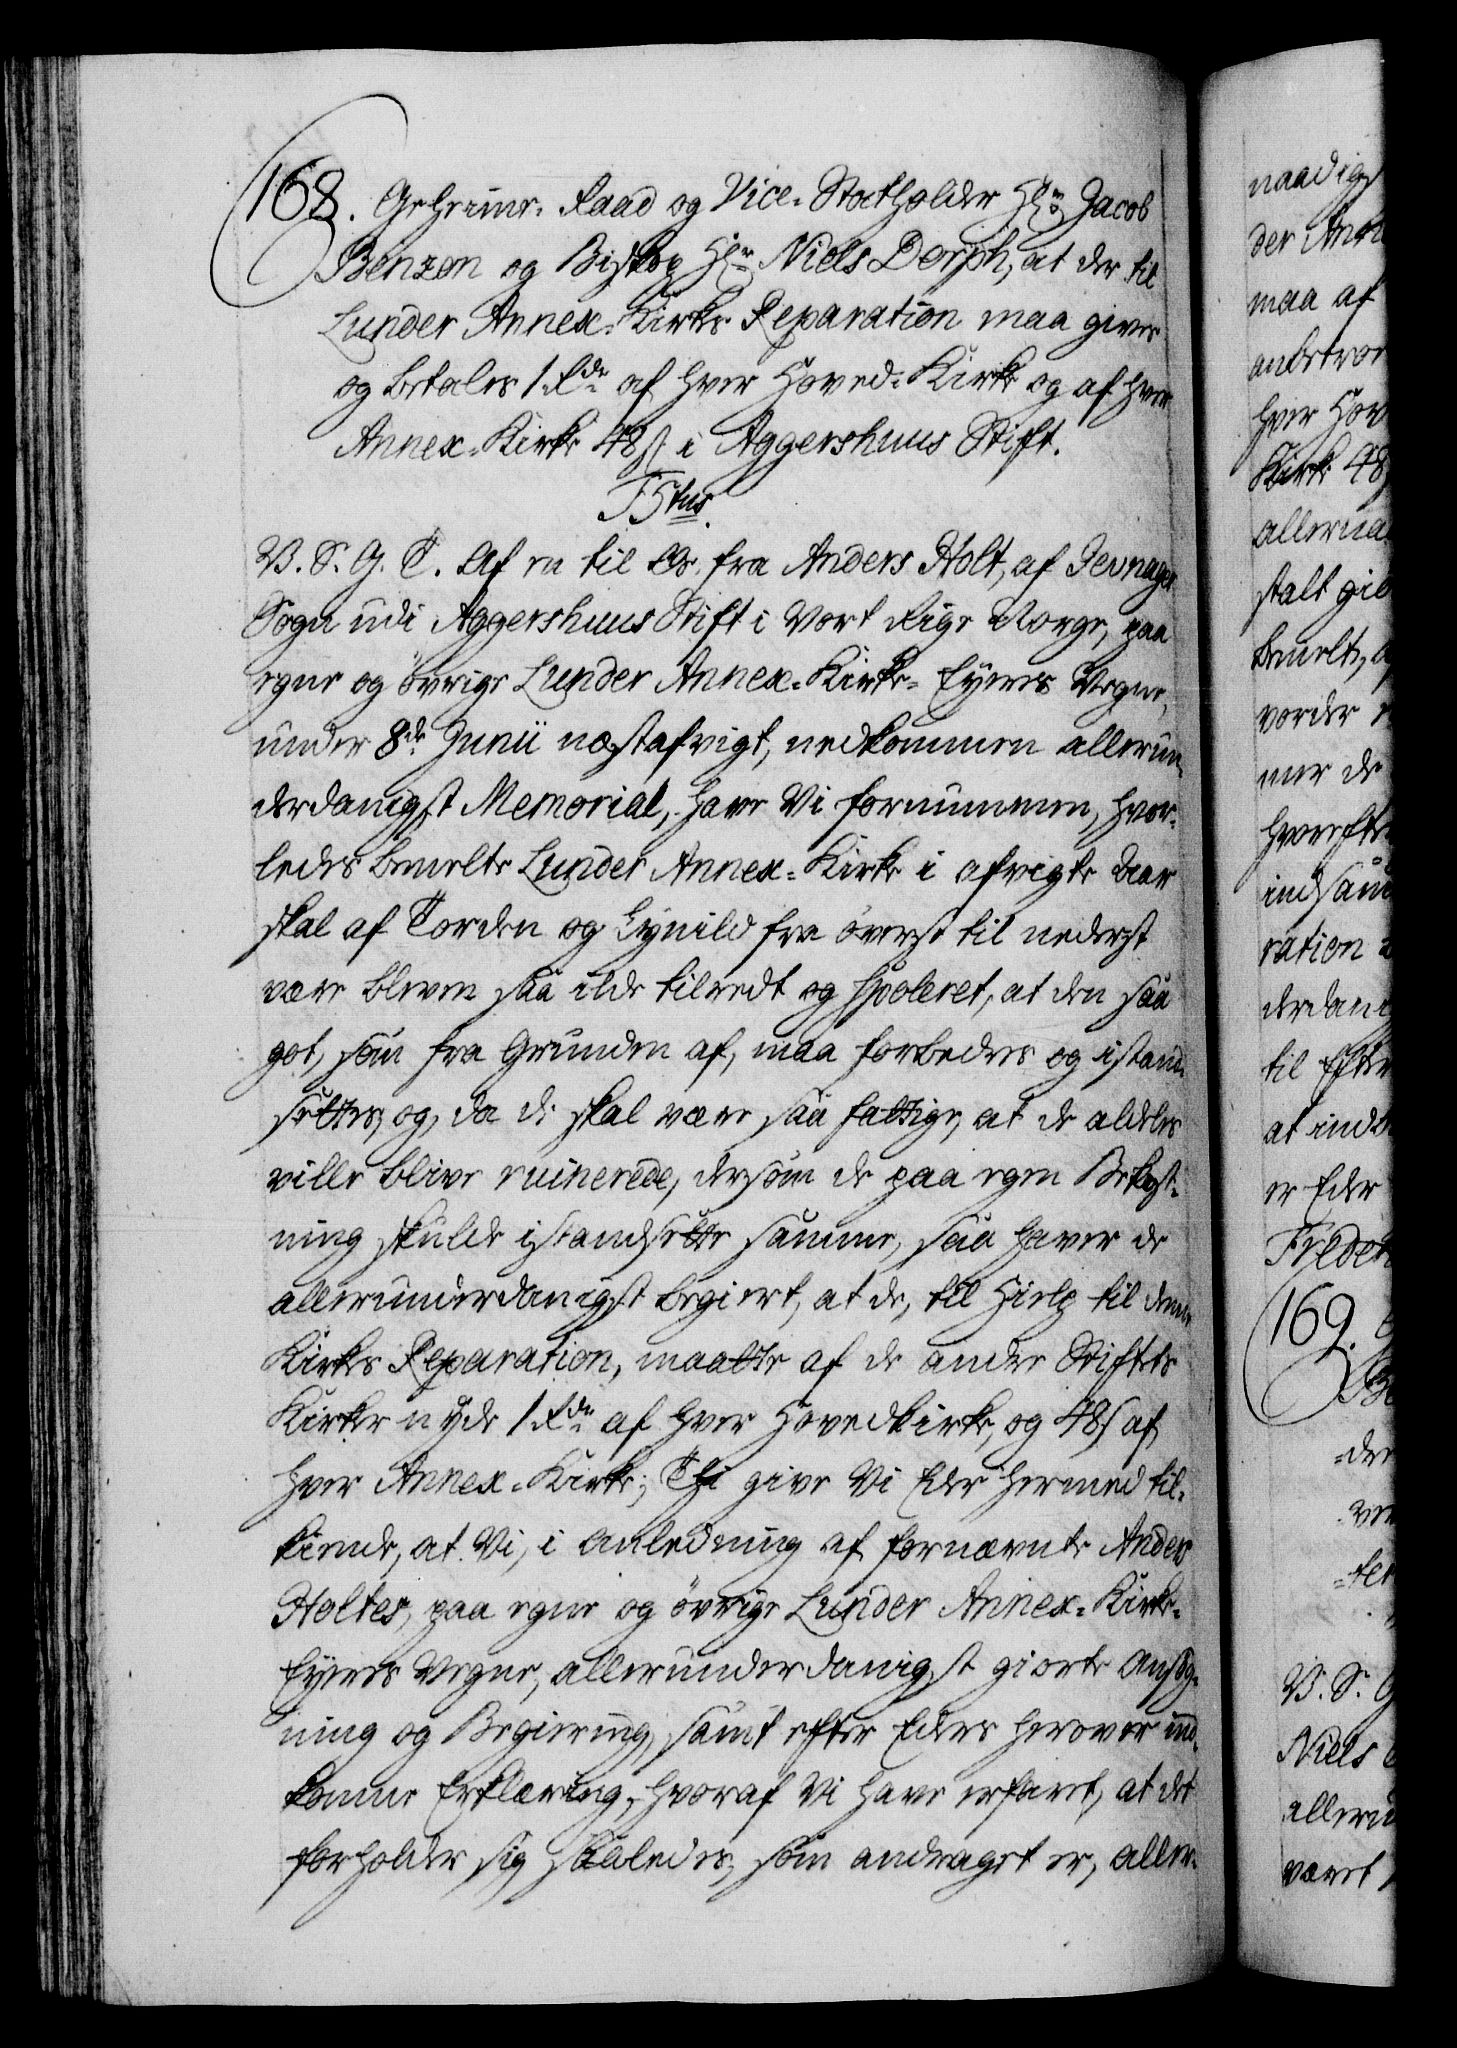 168. Geheime-Raad og Vice-Statholder Hr: Jacob
Benzon og Biskop Hr: Niels Dorph, at der til
Lunder Annex-Kirkes Reparation maa gives
og betales 1 Rdr. af hver Hoved-Kirke og af hver
Annex-Kirke 48 s i Aggershuus Stift.
F5tus.
V. S. G. T. Af en til Os fra Anders Holt, af Jevnager
Sogn udi Aggershuus Stift i Vort Rige Norge, paa
egne og övrige Lunder Annex-Kirke-Eyeres Vegne,
under 8de Junii næstafvigt, nedkommen allerun-
derdanigst Memorial, have Vi fornummen, hvor-
ledes bemelte Lunder Annex-Kirke i afvigte Aar
skal af Torden og Lynild fra överst til nederst
være bleven saa ilde tilredt og spoleret, at den saa
got, som fra Grunden af, maa forbedres og istand-
settes, og, da de skal være saa fattige, at de aldeles
ville blive ruinerede, dersom de paa egen Bekost-
ning skulde istandsette samme, saa haver de
allerunderdanigst begiert, at de, til Hielp til denne
Kirkes Reparation, maatte af de andre Stiftets
Kirker nyde 1 Rdr. af hver Hovedkirke, og 48 s af
hver Annex-Kirke; Thi give Vi Eder hermed til-
kiende, at Vi, i Anledning af fornævnte Anders
Holtes, paa egne og övrige Lunder Annex-Kirke-
Eyeres Vegne, allerunderdanigst giorte Ansög-
ning og Begiering, samt efter Eders herover ind-
komne Erklæring, hvoraf Vi have erfaret, at det
forholder sig saaledes, som andraget er, aller-
naadigst
der Ann
maa af
anbetroe
hver Hov
Kirke 48
allernaa
stalt gi
bemelte,
vorder
mer de
hvorefter
indsam
ration
derdani
til Efter
at ind
er Eder
Freder
169.
-der
ver
-ter
V. S. G
Niels
alleru
været